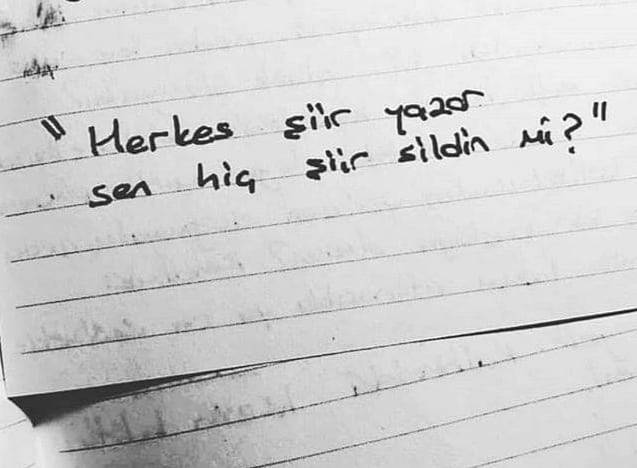 "Herkes şiir yazar
sen hiç şiir sildin mi?"